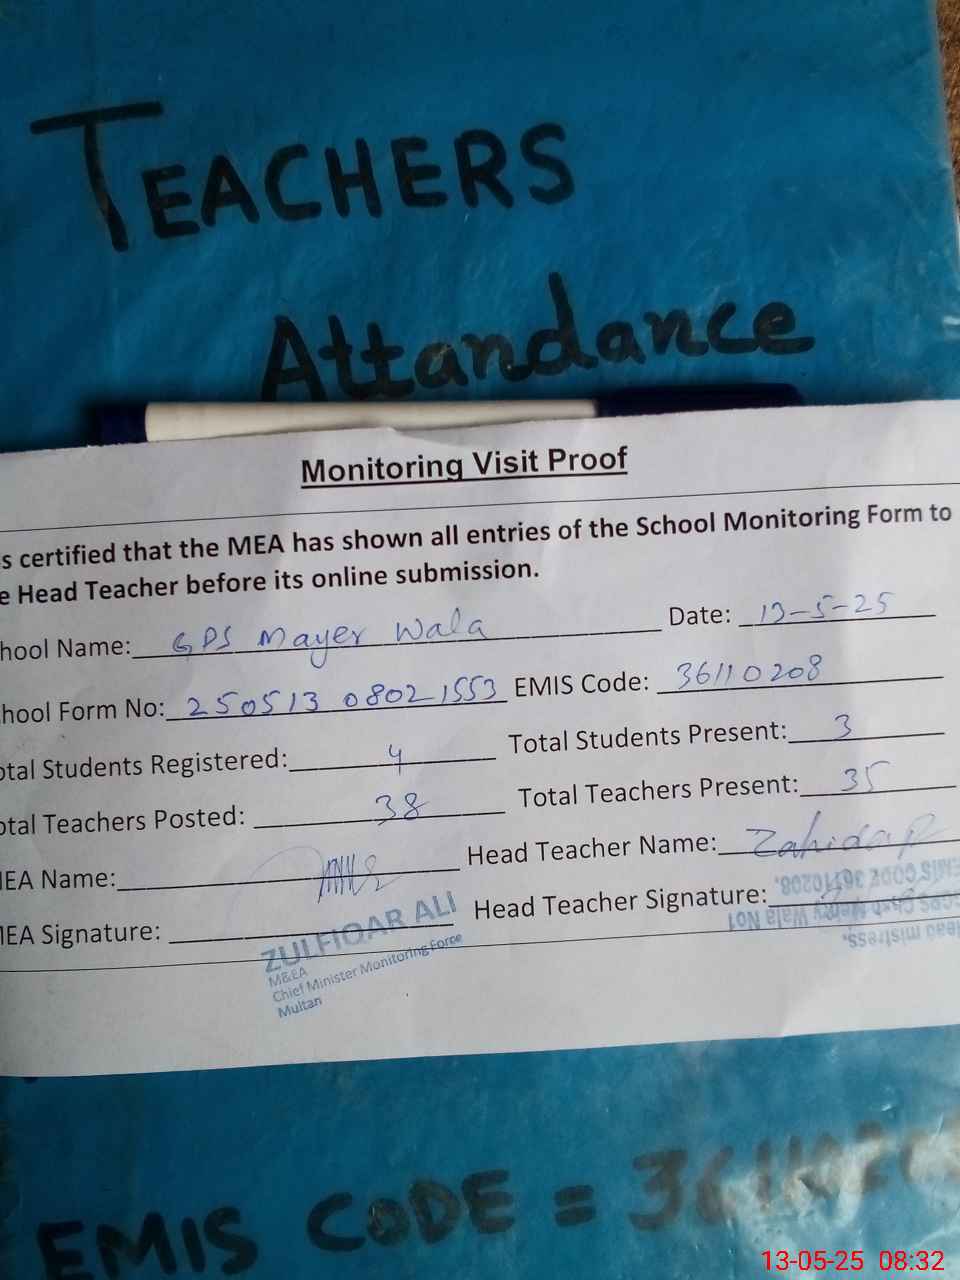 TEACHERS
Attandance
Monitoring Visit Proof
s certified that the MEA has shown all entries of the School Monitoring Form to
e Head Teacher before its online submission.
hool Name: GPS Mayer Wala Date: 13-5-25
hool Form No: 250513 08021553 EMIS Code: 36110208
otal Students Registered: 4 Total Students Present: 3
otal Teachers Posted: 38 Total Teachers Present: 35
IEA Name: Head Teacher Name: Zahida P
IEA Signature: Head Teacher Signature:
ZULFIQAR ALI
M&EA
Chief Minister Monitoring Force
Multan
Head mistress.
Wala No1
EMIS CODE 36110208.
EMIS CODE = 36110208
13-05-25 08:32